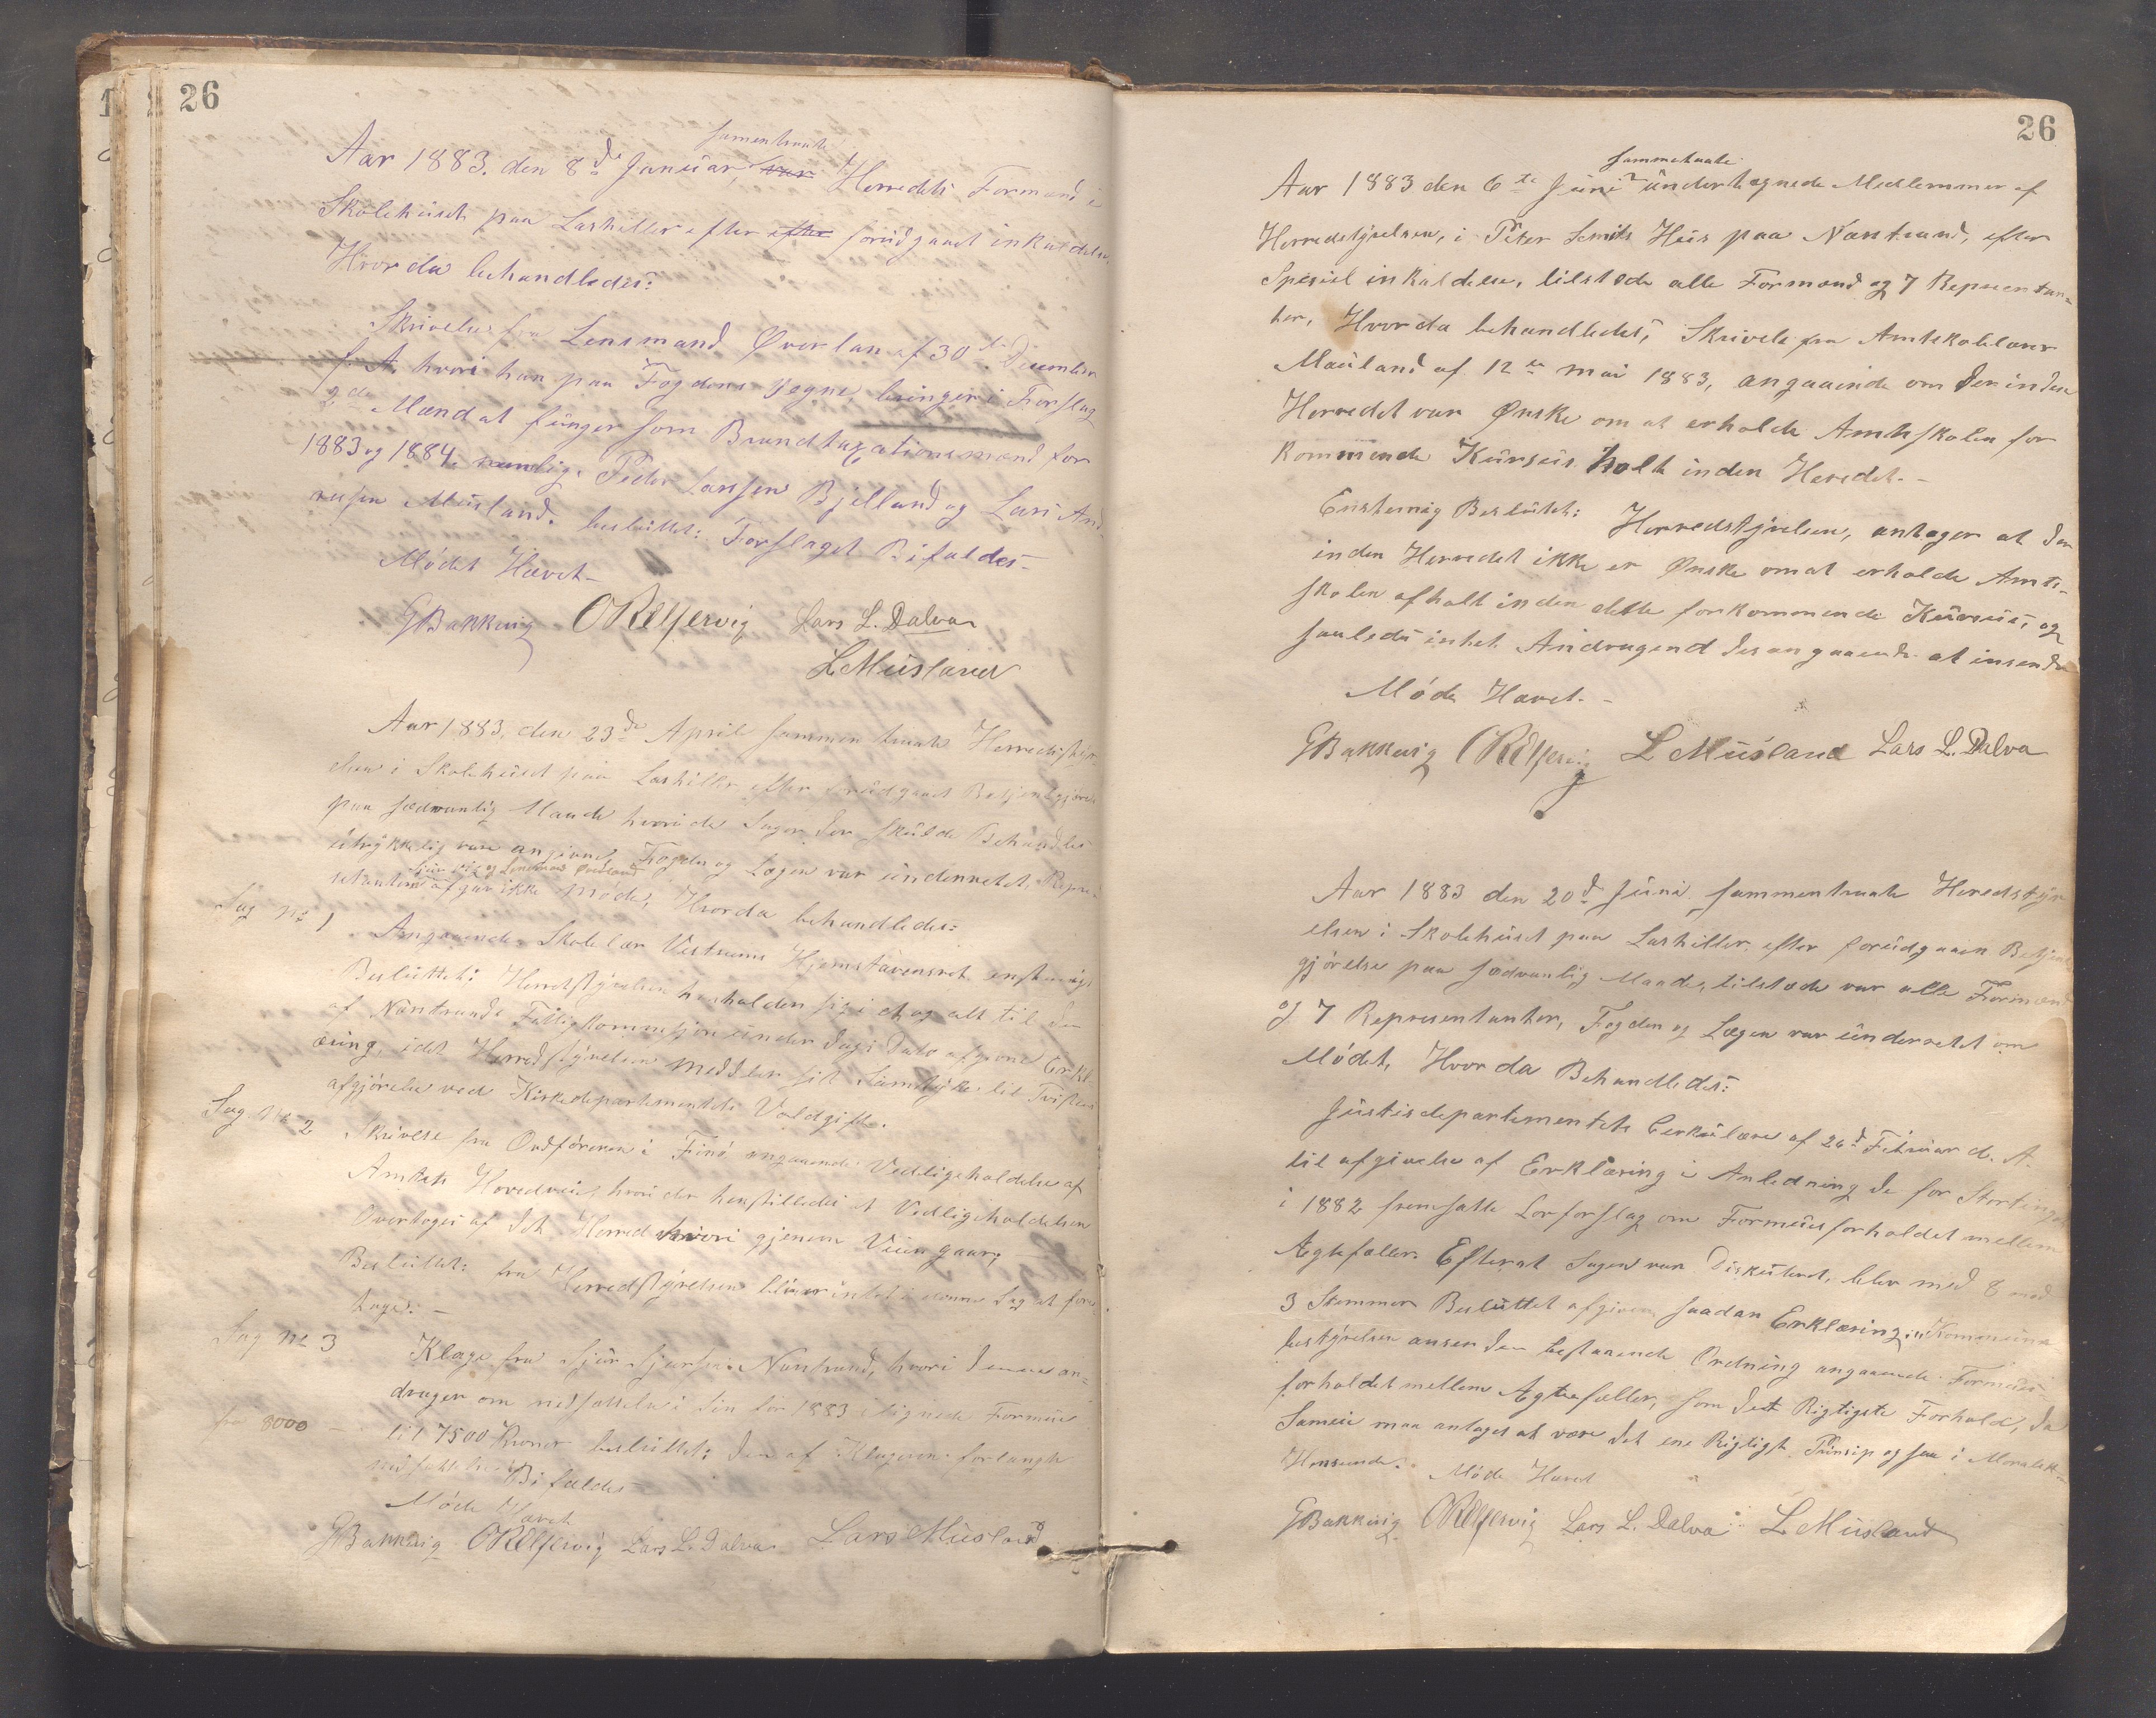 26
samentraate
Aar 1883. den 8de Januar, var Herredets Formænd i
Skolehuset paa Lashiller efter efter forudgaaet inkaldelse
Hvor da behandledes:
Skrivelse fra Lensmand Øverlan af 30te December
f. A. hvori han paa Fogdens vegne bringer i Forslag
2de Mænd at funger som Brandtaxationsmænd for
1883 og 1884. nemlig: Peder Larssen Bjelland og Lars And-
reasen Musland. besluttet: Forslaget Bifaldes-
Mødet Hævet-
GBakkevig OREljervig Lars L. Dalva
L Musland
Aar 1883, den 23de April sammentraate Herredsstyr-
elsen i Skolehuset paa Lashiller efter forudgaaet Betjentgjørelse
paa sædvanlig Maade hvori de Sager der skulde Behandles
utrykkelig vare angivne, Fogden og Lægen var underrettet, Repre-
sentanterne og Lensmand ikke møder, Hvorda behandledes:
Sag No 1 Angaaende Skolelær Vestrums Hjemstavnsret enstemigt
Besluttet: Herredstyrelsen henholder sig i et og alt til den
af Nærstrands Fattigkommisjon under Dags Dato afgivne Erklæ-
ring, idet Herredstyrelsen meddeler sit Samtykke til Tvistens
afgjørelse ved Kirkedepartementets Voldgift.
Sag No 2 Skrivelse fra Ordføreren i Finø angaaende Vedligeholdelse af
Amtets Hovedveie, hvori der henstilledes at Vedligeholdelsen
Overtoges af det Herred hvori gjenem Veien gaar,
Besluttet: fra Herredstyrelsen bliver intet i denne Sag at fore-
tages. -
Sag No 3 Klage fra Sjur Sjursen Nærstrand, hvori denne an-
drager om nedsættelse i sin for 1883 lignede Formue
fra 8000 - til 7500 Kroner besluttet: Den af Klageren forlangte
nedsættelse Bifaldes-
Møde Hævet
GBakkevig OREljervig Lars L. Dalva Lars Musland
26
sammetraate
Aar 1883 den 6te Juni undertegnede Medlemmer af
Herredstyrelsen, i Peter Smits Hus paa Nærstrand, efter
Spesiel inkaldelse, tilstede alle Formænd og 7 Representan-
ter, Hvorda behandledes, Skrivelse fra Amtskolelærer
Mauland af 12te mai 1883, angaaende om der inden
Herredet var Ønske om at erholde Amtsskolen for
kommende Kursus holt inden Heredet. -
Enstemig Beslutet: Herredstyrelsen, antager at der
inden Herredet ikke er Ønske om at erholde Amts-
skolen afholt inden dette forkommende Kursus, og
saaledes intet Andragend desangaaende at insende
Møde Hævet. -
GBakkevig OREljervig L Musland Lars L. Dalva
Aar 1883 den 20de Juni sammentraate Heredstyr
elsen i Skolehuset paa Lashiller, efter forudgaaen Betjent
gjørelse paa sædvanlig Maade, tilstede var alle Formænd
og 7 Representanter, Fogden og Lægen var underrettet om
Mødet, Hvor da Behandledes:
Justisdepartementets Cerkulære af 26de Februar d. A.
til afgivelse af Erklæring i Anledning de for Stortinget
i 1882 fremsatte Lovforslag om Formuesforholdet mellem
Ægtefæller. Efterat Sagen var Diskuteret, blev med 8 mod
3 Stemmer Besluttet afgiven saadan Erklæring: "Komunune
bestyrelsen anser den bestaaende Ordning angaaende Formues-
forholdet mellem Ægtefæller, som det Rigtigste Forhold, da
Sameie maa antages at være det ene Rigtigt Prinsip ogsaa i Moralsk
Henseende. Møde Hævet
GBakkevig OREljervig Lars L. Dalva L Musland